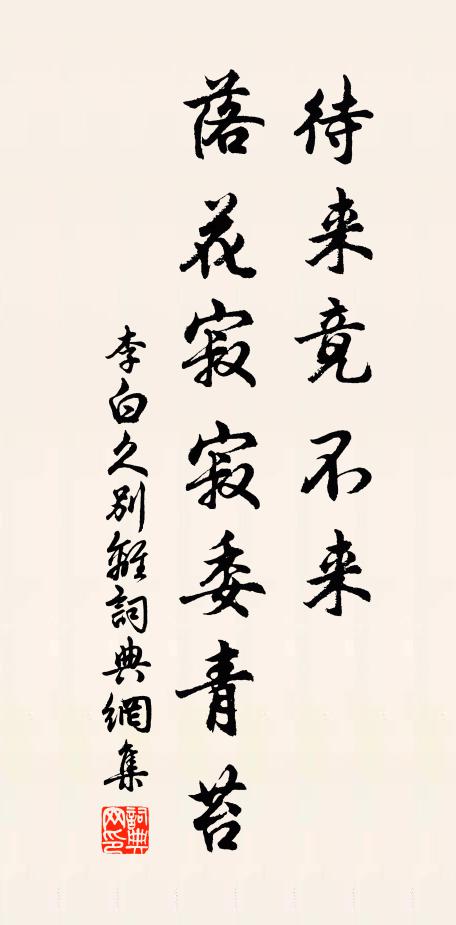 待来竟不来
落花寂寂委青苔
李白久别離詞典網集
詞典
网印